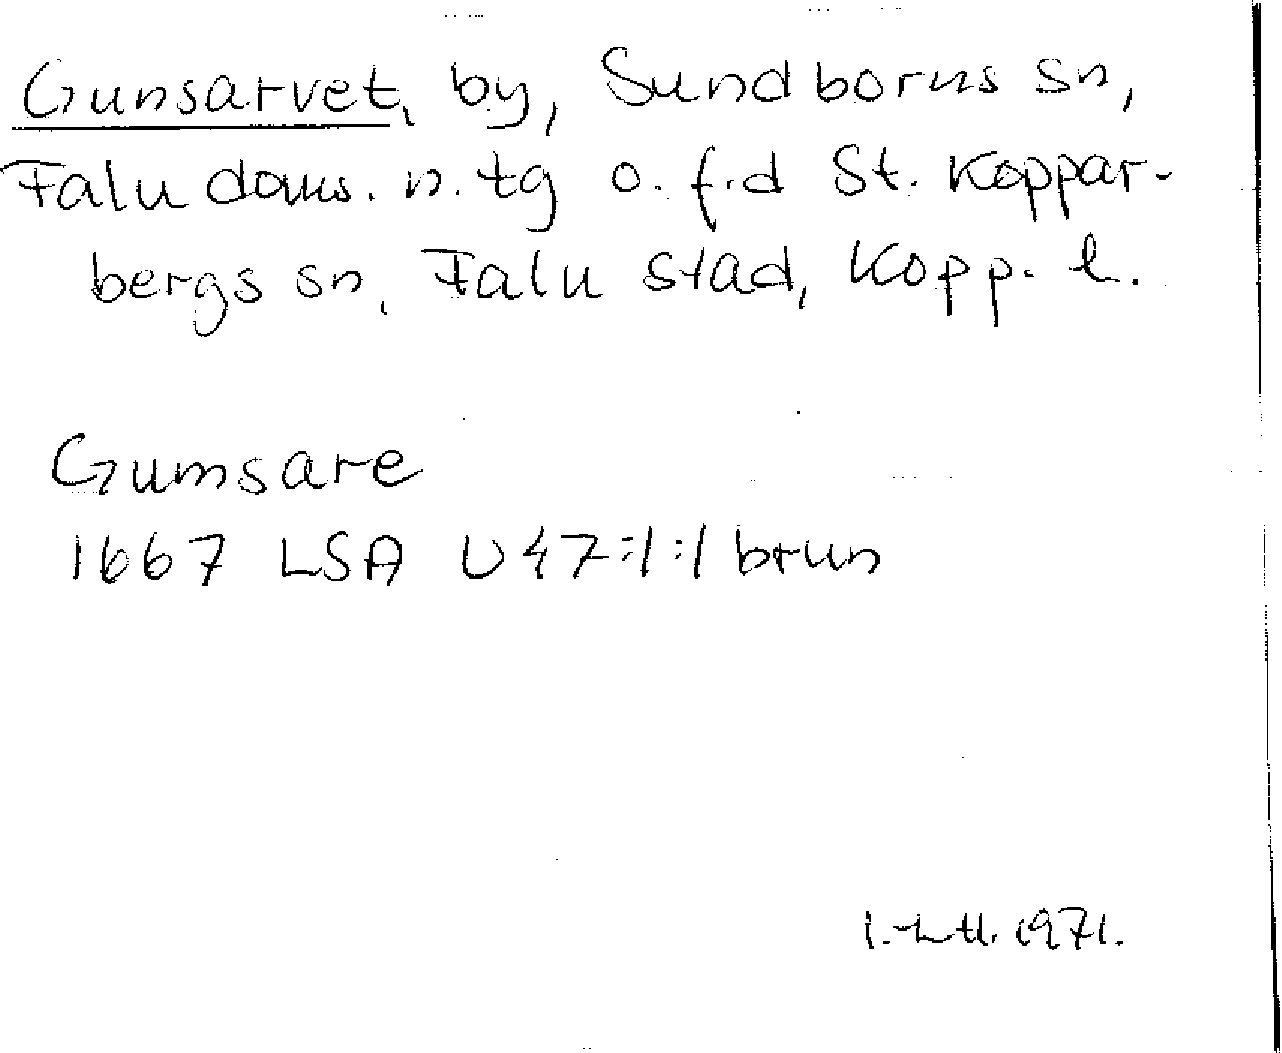 Gunsarvet, by, Sundborns sn,
Falu doms. n. tg o. f.d St. Koppar-
bergs sn, Falu stad, Kopp. l.
Gumsare
1667 LSA U47:1:1 brun
1971.